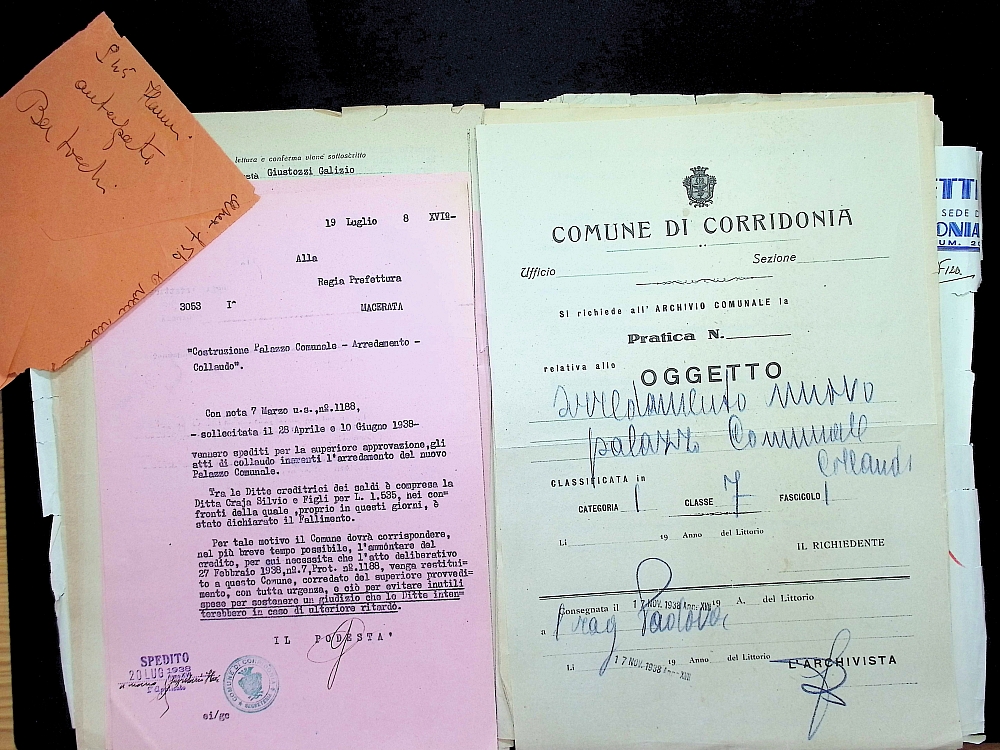 autografo
lettura e conferma viene sottoscritto
Giustozzi Galizio
19 Luglio 8 XVIº-
Alla
Regia Prefettura
3053 Iª MACERATA
"Costruzione Palazzo Comunale - Arredamento -
Collaudo".
Con nota 7 Marzo u.s.,nº.1188,
- sollecitata il 28 Aprile e 10 Giugno 1938-
vennero spediti per la superiore approvazione,gli
atti di collaudo inerenti l'arredamento del nuovo
Palazzo Comunale.
Tra le Ditte creditrici dei saldi è compresa la
Ditta Craja Silvio e Figli per L. 1.535, nei con=
fronti della quale ,proprio in questi giorni, è
stato dichiarato il Fallimento.
Per tale motivo il Comune dovrà corrispondere,
nel più breve tempo possibile, l'ammontare del
credito, per cui necessita che l'atto deliberativo
27 Febbraio 1938,nº.7,Prot. nº.1188, venga restitui=
to a questo Comune, corredato del superiore provvedi=
mento, con tutta urgenza, e ciò per evitare inutili
spese per sostenere un giudizio che le Ditte inten=
terebbero in caso di ulteriore ritardo.
IL PODESTA'
SPEDITO
20 LUG 1938
ei/gc
COMUNE DI CORRIDONIA
Ufficio Sezione
Si richiede all' ARCHIVIO COMUNALE la
Pratica N.
relativa allo OGGETTO
arredamento nuovo
palazzo Comunale
Collaudi
CLASSIFICATA in
CATEGORIA 1 CLASSE 7 FASCICOLO 1
Li 19 Anno del Littorio
IL RICHIEDENTE
Consegnata il 17 NOV. 1938 Anno XVII 19 A. del Littorio
a rag
Li 17 NOV. 1938 Anno XVII 19 Anno del Littorio L'ARCHIVISTA
ETTI
SEDE D
DONIA
UM. 20